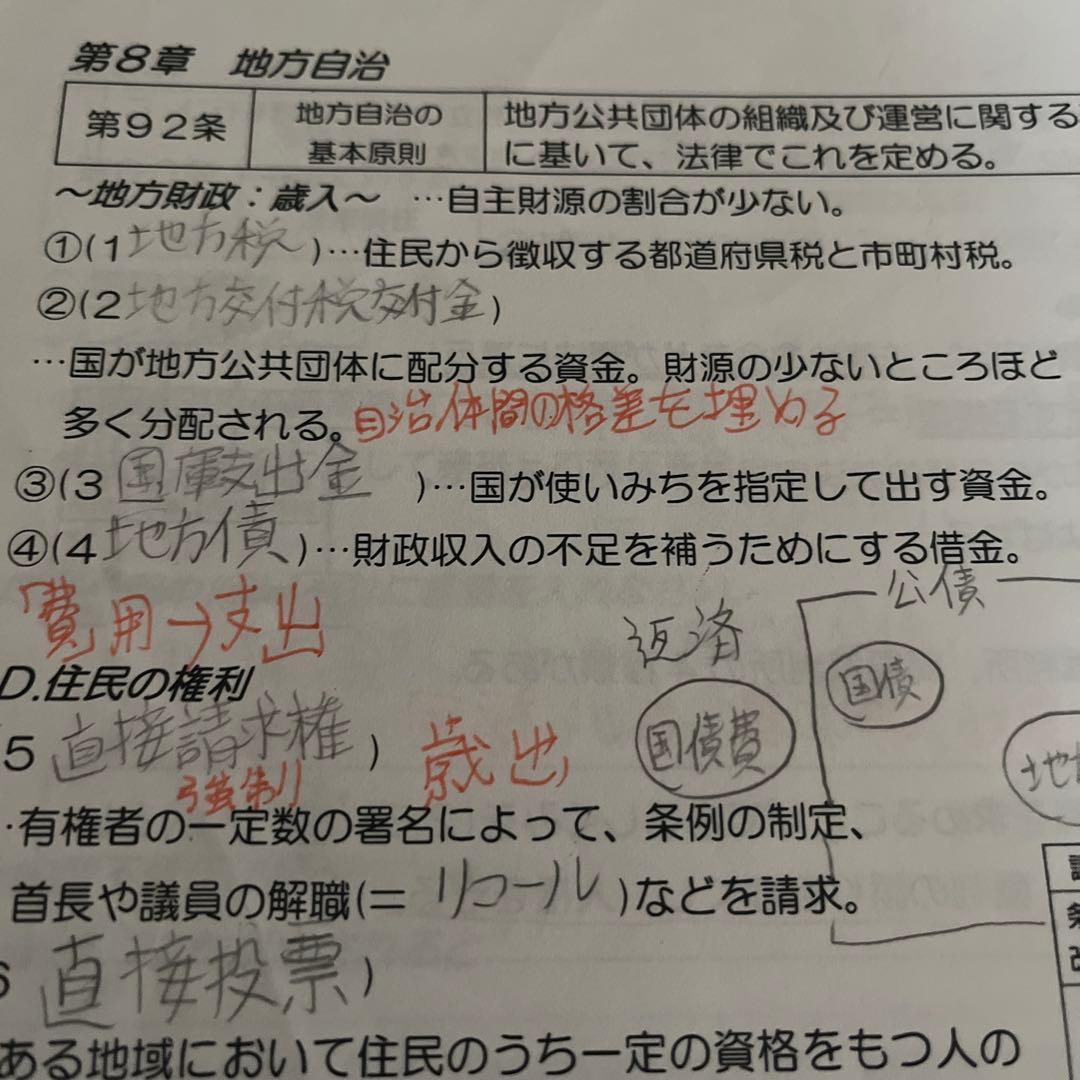 第8章 地方自治
第92条 地方自治の基本原則 地方公共団体の組織及び運営に関する
に基いて、法律でこれを定める。
～地方財政：歳入～ …自主財源の割合が少ない。
①(1 地方税 )…住民から徴収する都道府県税と市町村税。
②(2 地方交付税交付金)
…国が地方公共団体に配分する資金。財源の少ないところほど
多く分配される。自治体間の格差を埋める
③(3 国庫支出金 )…国が使いみちを指定して出す資金。
④(4 地方債 )…財政収入の不足を補うためにする借金。
公債
費用→支出
返済
国債
D.住民の権利
国債費
地
5 直接請求権 ) 歳出
強制
・有権者の一定数の署名によって、条例の制定、
首長や議員の解職(= リコール )などを請求。
6 直接投票 )
ある地域において住民のうち一定の資格をもつ人の